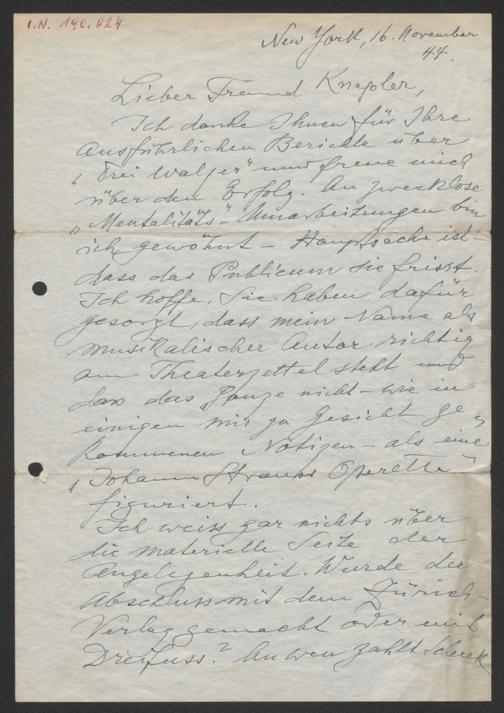 I.N. 190.824
New York, 16. November
44.
Lieber Freund Knepler,
Ich danke Ihnen für Ihre
ausführlichen Berichte über
„Drei Walzer" und freue mich
über den Erfolg. An zwecklose
„Mentalitäts"-Umarbeitungen bin
ich gewöhnt – Hauptsache ist –
dass das Publicum sie frisst.
Ich hoffe, Sie haben dafür
gesorgt, dass mein Name als
musikalischer Autor richtig
am Theaterzettel steht und
dass das Ganze nicht – wie in
einigen mir zu Gesicht ge-
kommenen Notizen – als eine
„Johann Strauss Operette"
figuriert.
Ich weiss gar nichts über
die materielle Seite der
Angelegenheit. Wurde der
Abschluss mit dem Zürich-
Verlag gemacht oder mit
Dreifuss? An wen zahlt